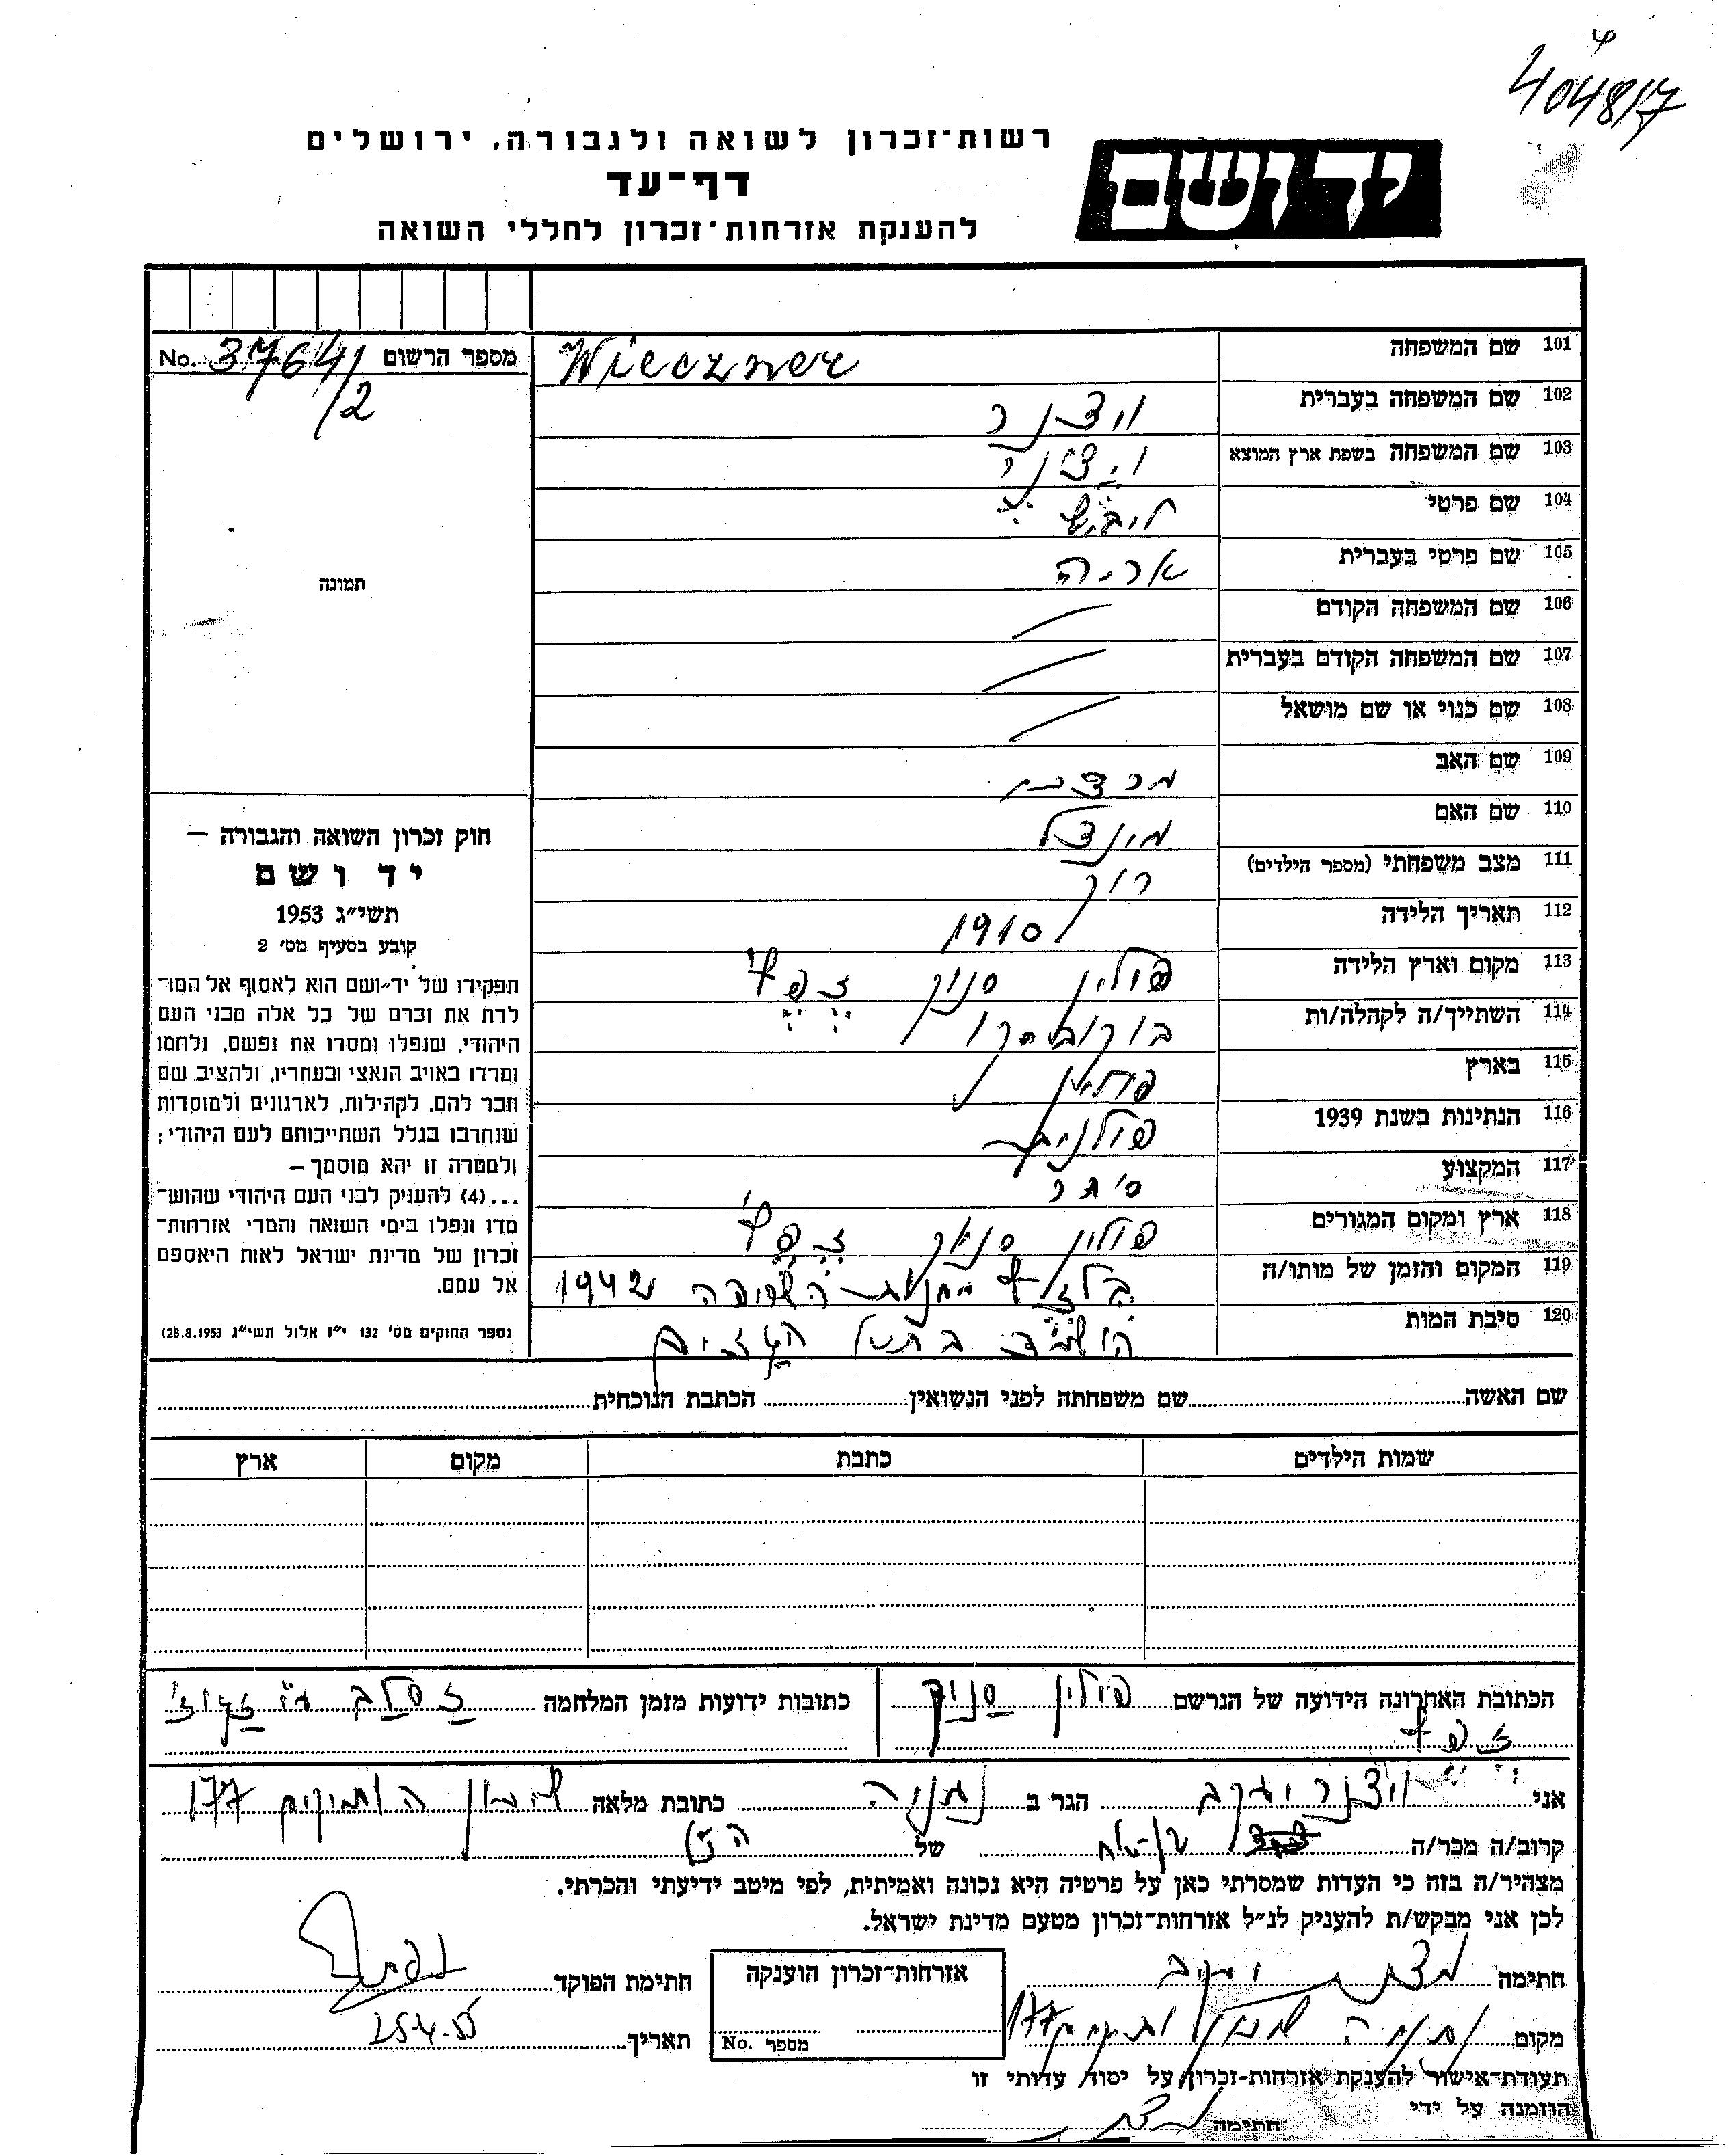 404817
רשות־זכרון לשואה ולגבורה, ירושלים
דף־עד
להענקת אזרחות־זכרון לחללי השואה
יד ושם
מספר הרשום No. 37641/2
101 שם המשפחה Wieczner
102 שם המשפחה בעברית ויצנר
103 שם המשפחה בשפת ארץ המוצא
104 שם פרטי ליביש
105 שם פרטי בעברית אריה
106 שם המשפחה הקודם
107 שם המשפחה הקודם בעברית
108 שם כנוי או שם מושאל
109 שם האב מרצכי
110 שם האם מינצל
111 מצב משפחתי (מספר הילדים) רוק
112 תאריך הלידה 1910
113 מקום וארץ הלידה פולין סנוק
114 השתייך/ה לקהלה/ות בוקובסקו
115 בארץ פולין
116 הנתינות בשנת 1939 פולנית
117 המקצוע סוחר
118 ארץ ומקום המגורים פולין סנוק
119 המקום והזמן של מותו/ה בלזץ מחנות השריפה 1942
120 סיבת המות הושמד
תמונה
חוק זכרון השואה והגבורה —
יד ושם
תשי״ג 1953
קובע בסעיף מס׳ 2
תפקידו של יד־ושם הוא לאסוף אל המו־
לדת את זכרם של כל אלה מבני העם
היהודי, שנפלו ומסרו את נפשם, נלחמו
ומרדו באויב הנאצי ובעוזריו, ולהציב שם
וזכר להם, לקהילות, לארגונים ולמוסדות
שנחרבו בגלל השתייכותם לעם היהודי;
ולמטרה זו יהא מוסמך —
...(4) להעניק לבני העם היהודי שהוש־
מדו ונפלו בימי השואה והמרי אזרחות־
זכרון של מדינת ישראל לאות היאספם
אל עמם.
(ספר החוקים מס׳ 132 י״ז אלול תשי״ג 28.8.1953)
שם האשה שם משפחתה לפני הנשואין הכתבת הנוכחית
שמות הילדים כתבת מקום ארץ
הכתובת האחרונה הידועה של הנרשם פולין סנוק
כתובות ידועות מזמן המלחמה זסלב
אני ויצנר יעקב הגר ב נתניה כתובת מלאה שכון הותיקים 177
קרוב/ה מכר/ה בן־אח של הנ״ל
מצהיר/ה בזה כי העדות שמסרתי כאן על פרטיה היא נכונה ואמיתית, לפי מיטב ידיעתי והכרתי.
לכן אני מבקש/ת להעניק לנ״ל אזרחות־זכרון מטעם מדינת ישראל.
חתימה ויצנר יעקב
אזרחות־זכרון הוענקה
מספר No.
חתימת הפוקד
מקום נתניה שכון ותיקים 177
תאריך 25.4.55
תעודת־אישור להענקת אזרחות־זכרון על יסוד עדותי זו
הוזמנה על ידי
חתימה